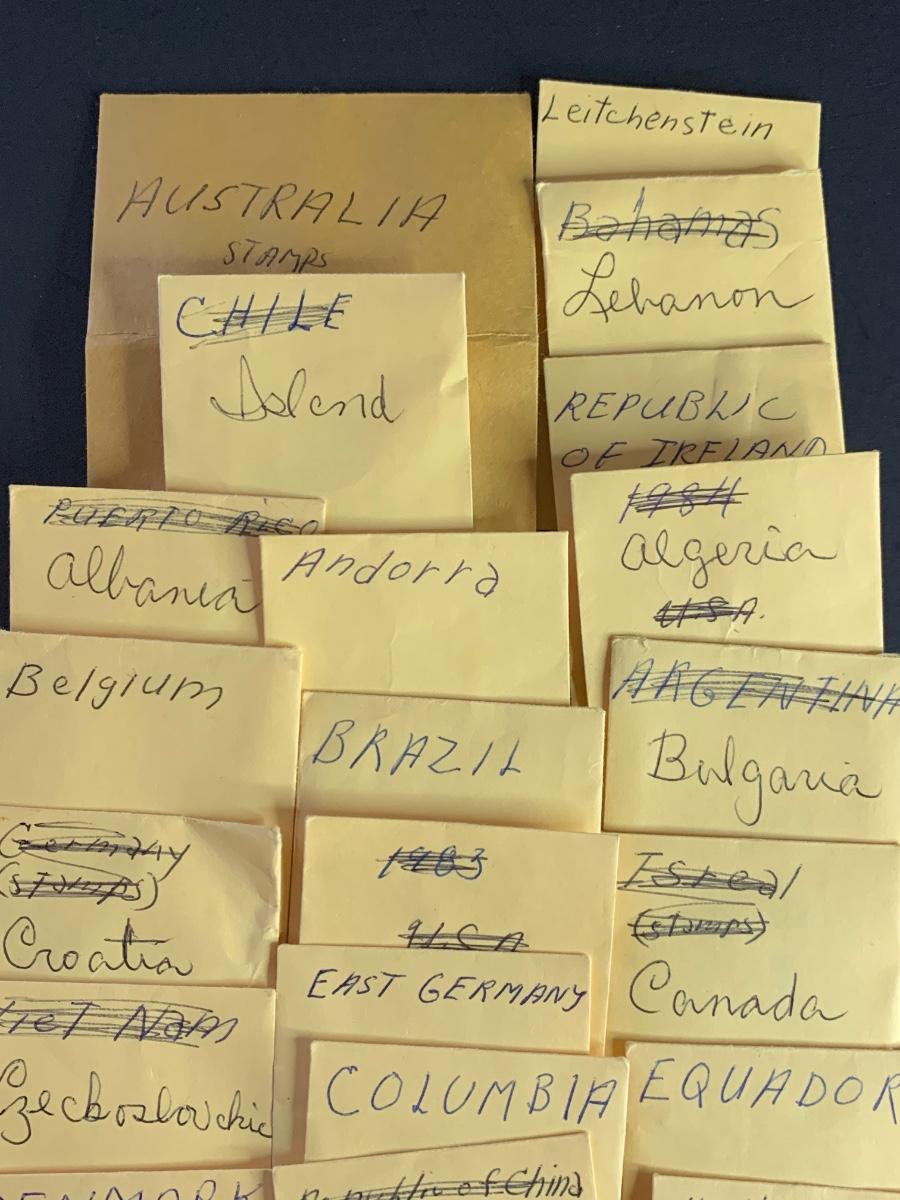 Leitchenstein
AUSTRALIA
STAMPS
Bahamas
Lebanon
CHILE
Island
REPUBLIC
OF IRELAND
PUERTO RICO
Albania
Andorra
1984
Algeria
U.S.A.
Belgium
BRAZIL
ARGENTINA
Bulgaria
Germany
(stamps)
Croatia
1983
Isreal
(stamps)
Canada
EAST GERMANY
Viet Nam
Czechoslovckic
COLUMBIA
EQUADOR
DENMARK
Republic of China